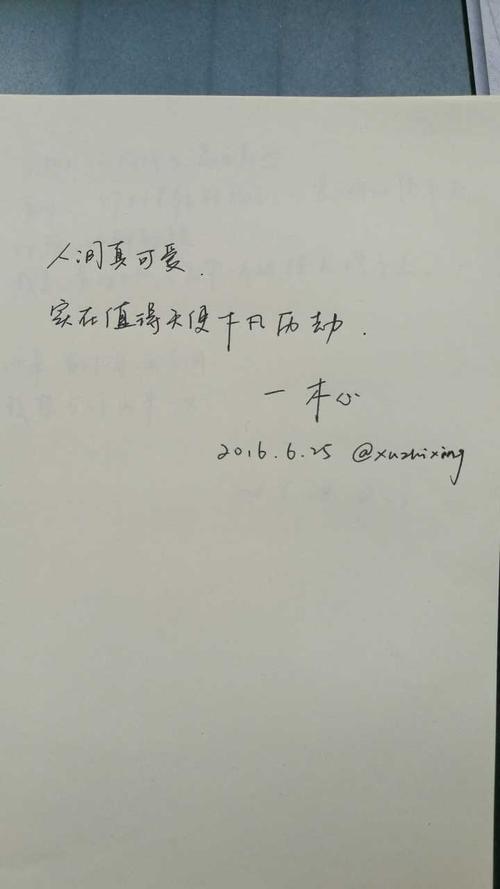 人间真可爱.
实在值得天使下凡历劫.
一木心
2016.6.25 @xuzhixing